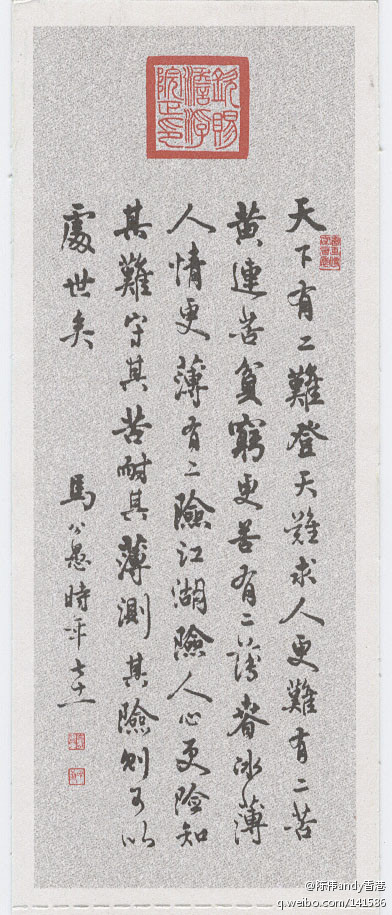 天下有二難登天難求人更難有二苦
黄連苦貧窮更苦有二薄春冰薄
人情更薄有二險江湖險人心更險知
其難守其苦耐其薄測其險則可以
處世矣
馬公愚時年七十
@陈祎andy香港
q.weibo.com/141586